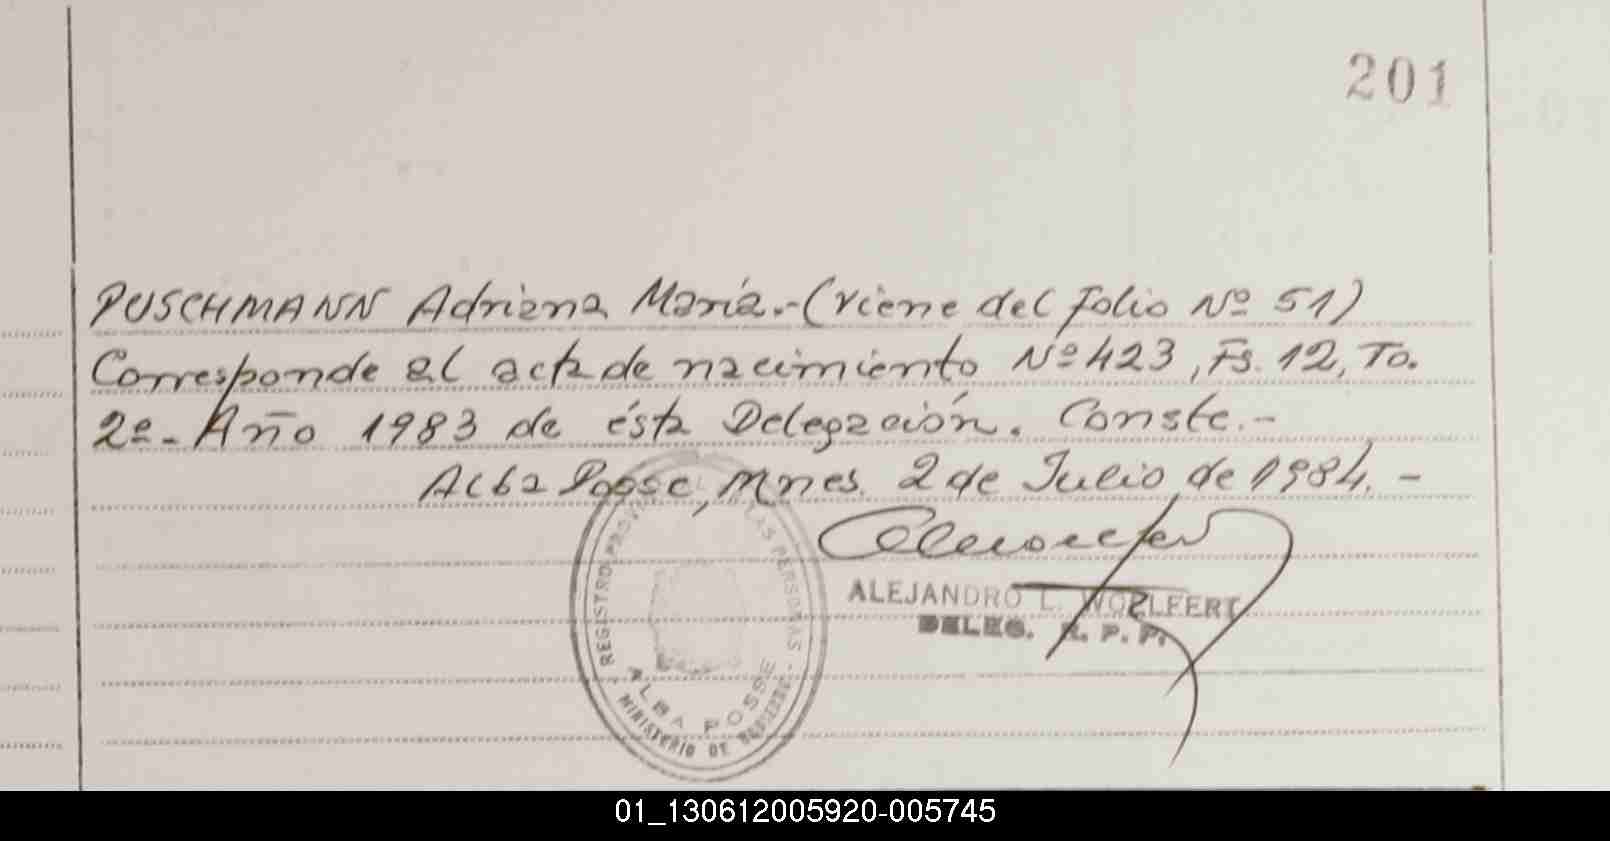 201
PUSCHMANN Adriana María.-(viene del folio Nº 51)
Corresponde al acta de nacimiento Nº 423, Fs. 12, To.
2º.- Año 1983 de ésta Delegación. Conste.-
Alba Posse, Mnes. 2 de Julio de 1984.-
ALEJANDRO L. WOELFERT
DELEG. R. P. P.
REGISTRO PROVINCIAL DE LAS PERSONAS -
ALBA POSSE
MINISTERIO DE GOBIERNO
01_130612005920-005745